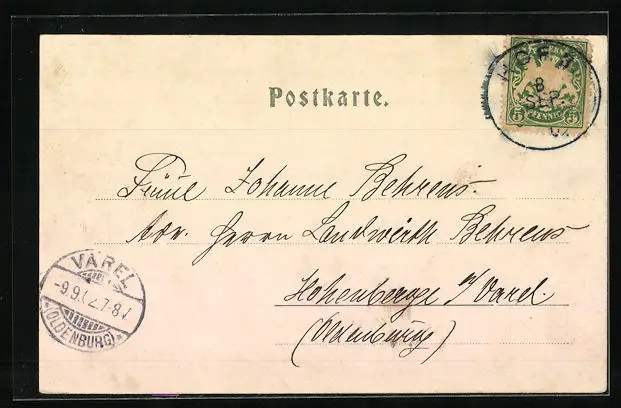 BAYERN
5 PFENNIG 5
8
SEP.
02
Postkarte.
Fräul Johanne Behrens.
Adr. Herrn Landwirth Behrens
Hohenberge i/Varel.
(Oldenburg)
VAREL
-9.9.02.7-8V
*(OLDENBURG)*